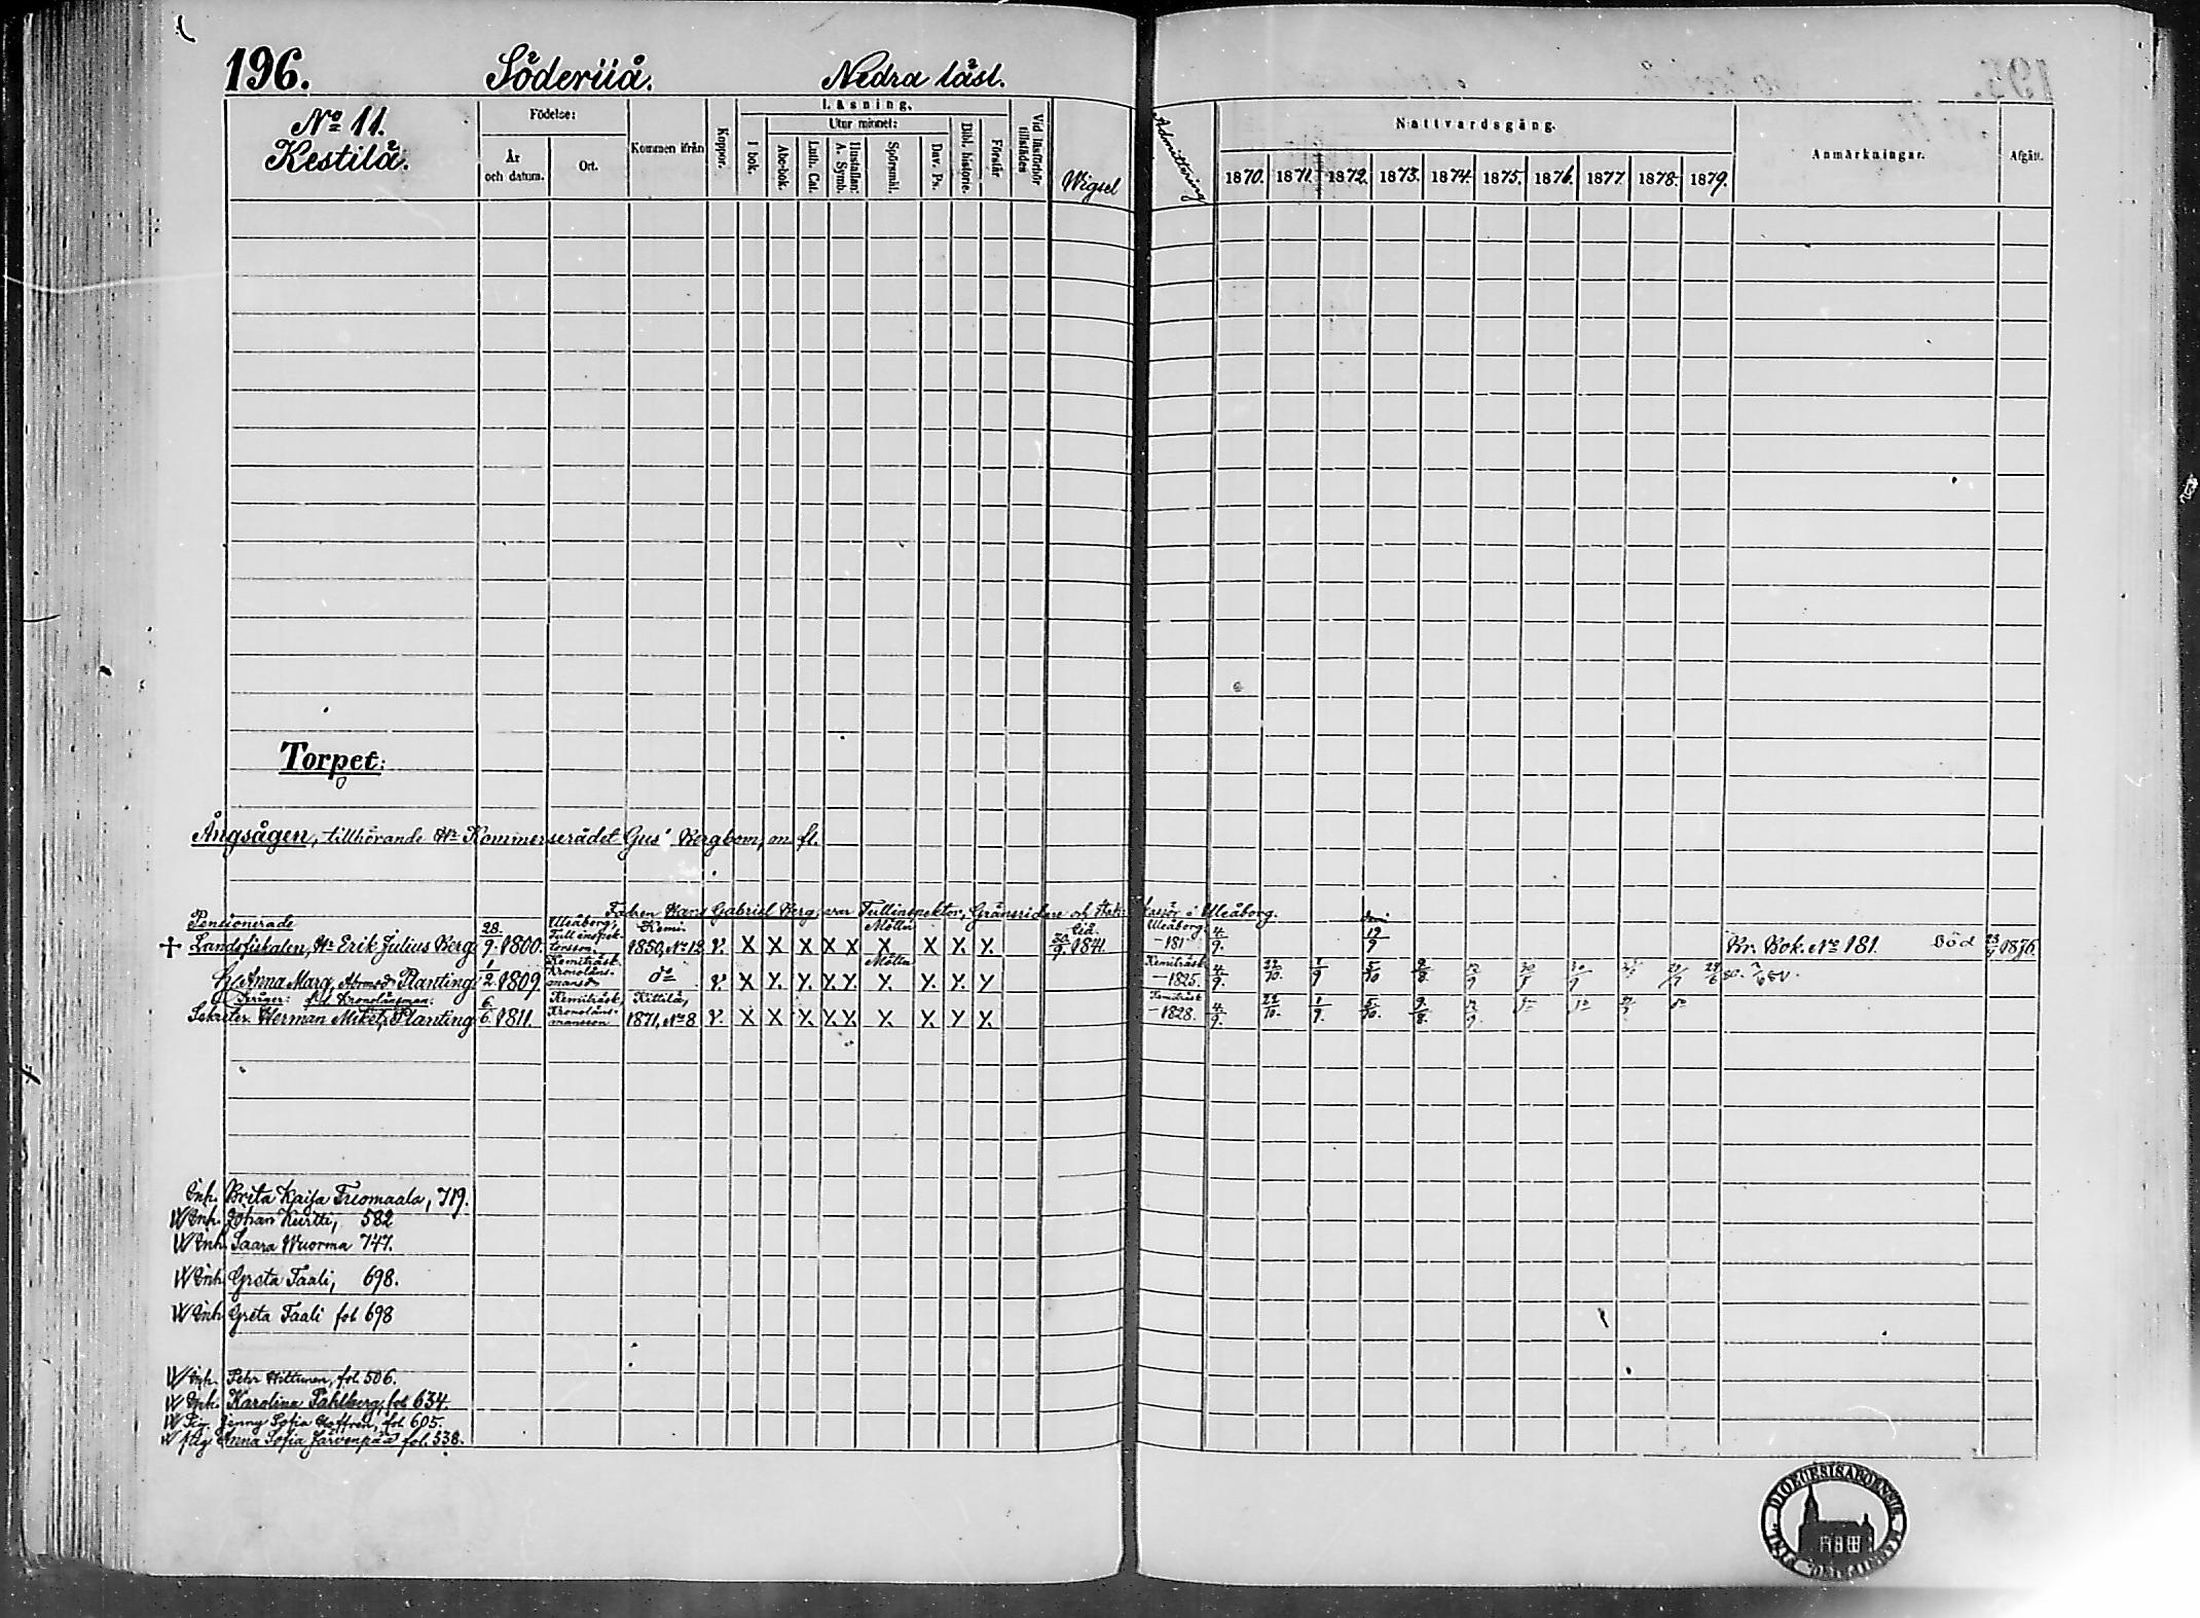 196. Söderiiå. Nedra läsl.
No 11.
Kestilä.
Födelse:
År och datum.
Ort.
Kommen ifrån
Koppor.
Läsning.
I bok.
Utur minnet:
Abc-bok.
Luth. Cat.
Hustaflan: A. Symb.
Spörsmål.
Dav. Ps.
Bibl. historie.
Förstår
Vid läsförhör tillstädes
Wigsel
Admittering
Nattvardsgång.
1870. 1871. 1872. 1873. 1874. 1875. 1876. 1877. 1878. 1879.
Anmärkningar.
Afgått.
Torpet:
Ångsågen, tillhörande Hr Kommerserådet Gus' Bergbom, m fl.
Fadren Hans Gabriel Berg, var Tullinspektor, Gränsridare och kassör i Uleåborg.
Pensionerade
† Landsfiskalen, Hr Erik Julius Berg 28/9. 1800. Uleåborg, Tullinspektorsson Kemi. 1850, No 18 v. X X X X X Mölta X X X. X. 1841. Uleåborg -181 4/9. 19/9 Br. Bok. No 181. Död 1876.
H. Anna Marg. Planting 1/2 1809 Kemiträsk Kronolänsmansd. do v. X X. X. X X. Mölta X. X. X. X Kemiträsk -1825. 4/9. 22/10. 1/9 5/10 9/8.
f.d. Kronolänsman:
Sekreter. Herman Mikel, Planting 6/6. 1811. Kemiträsk, Kronolänsmansson Kittilä, 1871, No 8 v. X X X. X X. X X. X X. Kemiträsk -1828. 4/9. 22/10. 1/9. 5/10. 9/8.
Inh. Brita Kaisa Friomaala, 719.
W Inh. Johan Kurtti, 582
W Inh Saara Wuorma 747.
W Inh Greta Taali, 698.
W Inh Greta Taali fol 698
W Inh. Pehr Hiltunen, fol. 506.
W Inh. Karolina Påhlberg, fol 634.
W Pig. Jenny Sofia Hoffrén, fol. 605.
W Pig Anna Sofia Järvenpää fol. 538.
DIOECESIS ABOENSIS